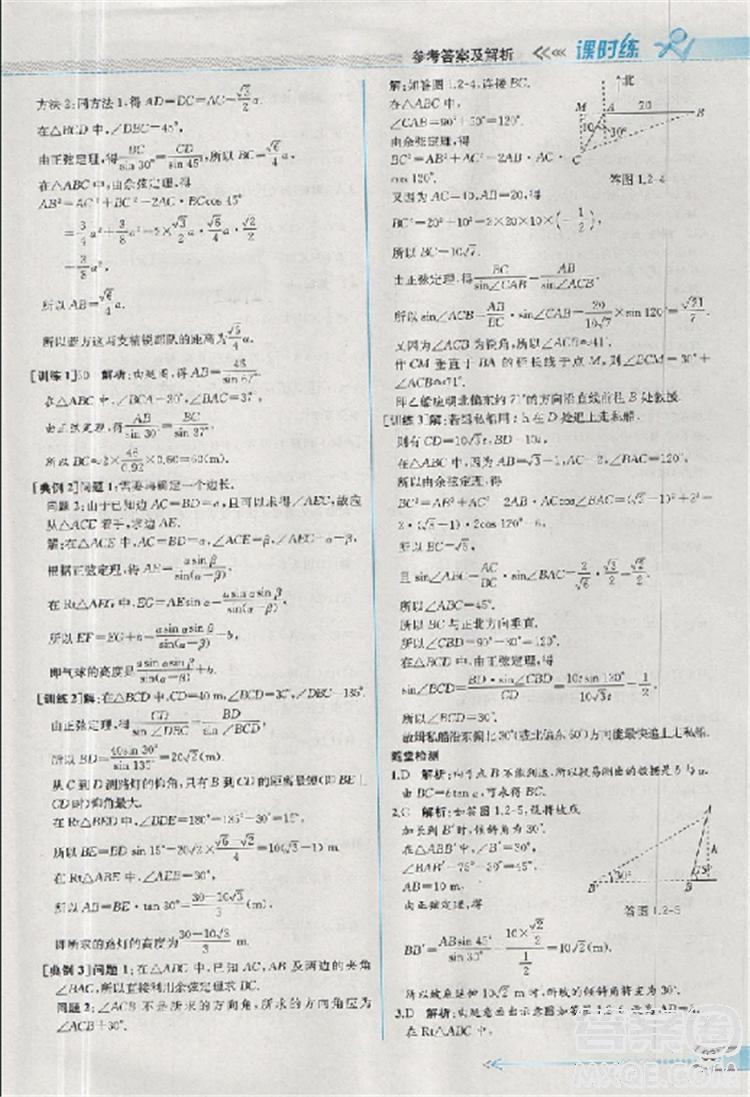 参考答案及解析
课时练
方法2:同方法1,得AD=DC=AC=√3/2 a.
在△BCD中,∠DBC=45°,
由正弦定理,得 BC/sin 30°=CD/sin 45°,所以BC=√6/4 a.
在△ABC中,由余弦定理,得
AB²=AC²+BC²-2AC·BCcos 45°
=3/4 a²+3/8 a²-2×√3/2 a·√6/4 a·√2/2
=3/8 a².
所以AB=√6/4 a.
[训练1]60 解析:由题图,得AB=46/sin 67°,
在△ABC中,∠BCA=30°,∠BAC=37°,
由正弦定理,得 AB/sin 30°=BC/sin 37°,
所以BC≈2×46/0.92×0.60=60(m).
[典例2]问题1:需要再确定一个边长.
问题2:由于已知边AC=BD=a,且可以求出∠AEC,故应
从△ACE着手,求边AE.
解:在△ACE中,AC=BD=a,∠ACE=β,∠AEC=α-β,
根据正弦定理,得AE=asin β/sin(α-β).
在Rt△AEG中,EG=AEsin α=asin αsin β/sin(α-β).
所以EF=EG+b=asin αsin β/sin(α-β)+b,
即气球的高度是asin αsin β/sin(α-β)+b.
[训练2]解:在△BCD中,CD=40 m,∠BCD=30°,∠DBC=135°.
由正弦定理,得 CD/sin∠DBC=BD/sin∠BCD,
所以BD=40sin 30°/sin 135°=20√2(m).
从C到D测路灯的仰角,只有B到CD的距离最短(即BE⊥
CD)时仰角最大.
在Rt△BED中,∠BDE=180°-135°-30°=15°,
所以BE=BDsin 15°=20√2×(√6-√2)/4=10(√3-1)(m).
在Rt△ABE中,∠AEB=30°,
所以AB=BE·tan 30°=(30-10√3)/3(m),
即所求的路灯的高度为(30-10√3)/3 m.
[典例3]问题1:在△ABC中,已知AC,AB及两边的夹角
∠BAC,所以直接利用余弦定理求BC.
问题2:∠ABC中 所求的方向角,所求的方向角应为
∠ACB+30°.
解:如答图1.2-4,连接BC.
在△ABC中,
∠CAB=90°+30°=120°.
由余弦定理,得
BC²=AB²+AC²-2AB·AC·
cos 120°.
又因为AC=10,AB=20,得
BC²=20²+10²-2×20×10×(-1/2),
所以BC=10√7.
由正弦定理,得 BC/sin∠CAB=AB/sin∠ACB,
所以sin∠ACB=AB/BC·sin∠CAB=20/10√7×√3/2=√21/7.
又因为∠ACB为锐角,所以∠ACB≈41°.
作CM垂直于BA的延长线于点M,所以∠BCM=30°+
∠ACB≈71°.
北 M A 20 B 10 30° C
答图1.2-4
则有CD=10√3t,BD=10t.
所以由余弦定理,得
BC²=AB²+AC²-2AB·AC·cos∠BAC=(√3-1)²+2²-
2×(√3-1)·2cos 120°=6,
所以BC=√6,
且sin∠ABC=AC/BC·sin∠BAC=2/√6·√3/2=√2/2.
所以∠ABC=45°.
所以BC与正北方向垂直.
所以∠CBD=90°+30°=120°.
在△BCD中,由正弦定理,得
sin∠BCD=BD·sin∠CBD/CD=10tsin 120°/10√3t=1/2,
所以∠BCD=30°.
随堂检测
加长到B′时,倾斜角为30°.
在△ABB′中,∠B′=30°,
∠BAB′=75°-30°=45°,
AB=10 m,
由正弦定理,得
A B′ 30° B 75°
答图1.2-5
BB′=ABsin 45°/sin 30°=10×√2/2/1/2=10√2(m).
所以坡底延伸10√2 m时,斜坡的倾斜角将变为30°.
在Rt△ABC中,
答案圈